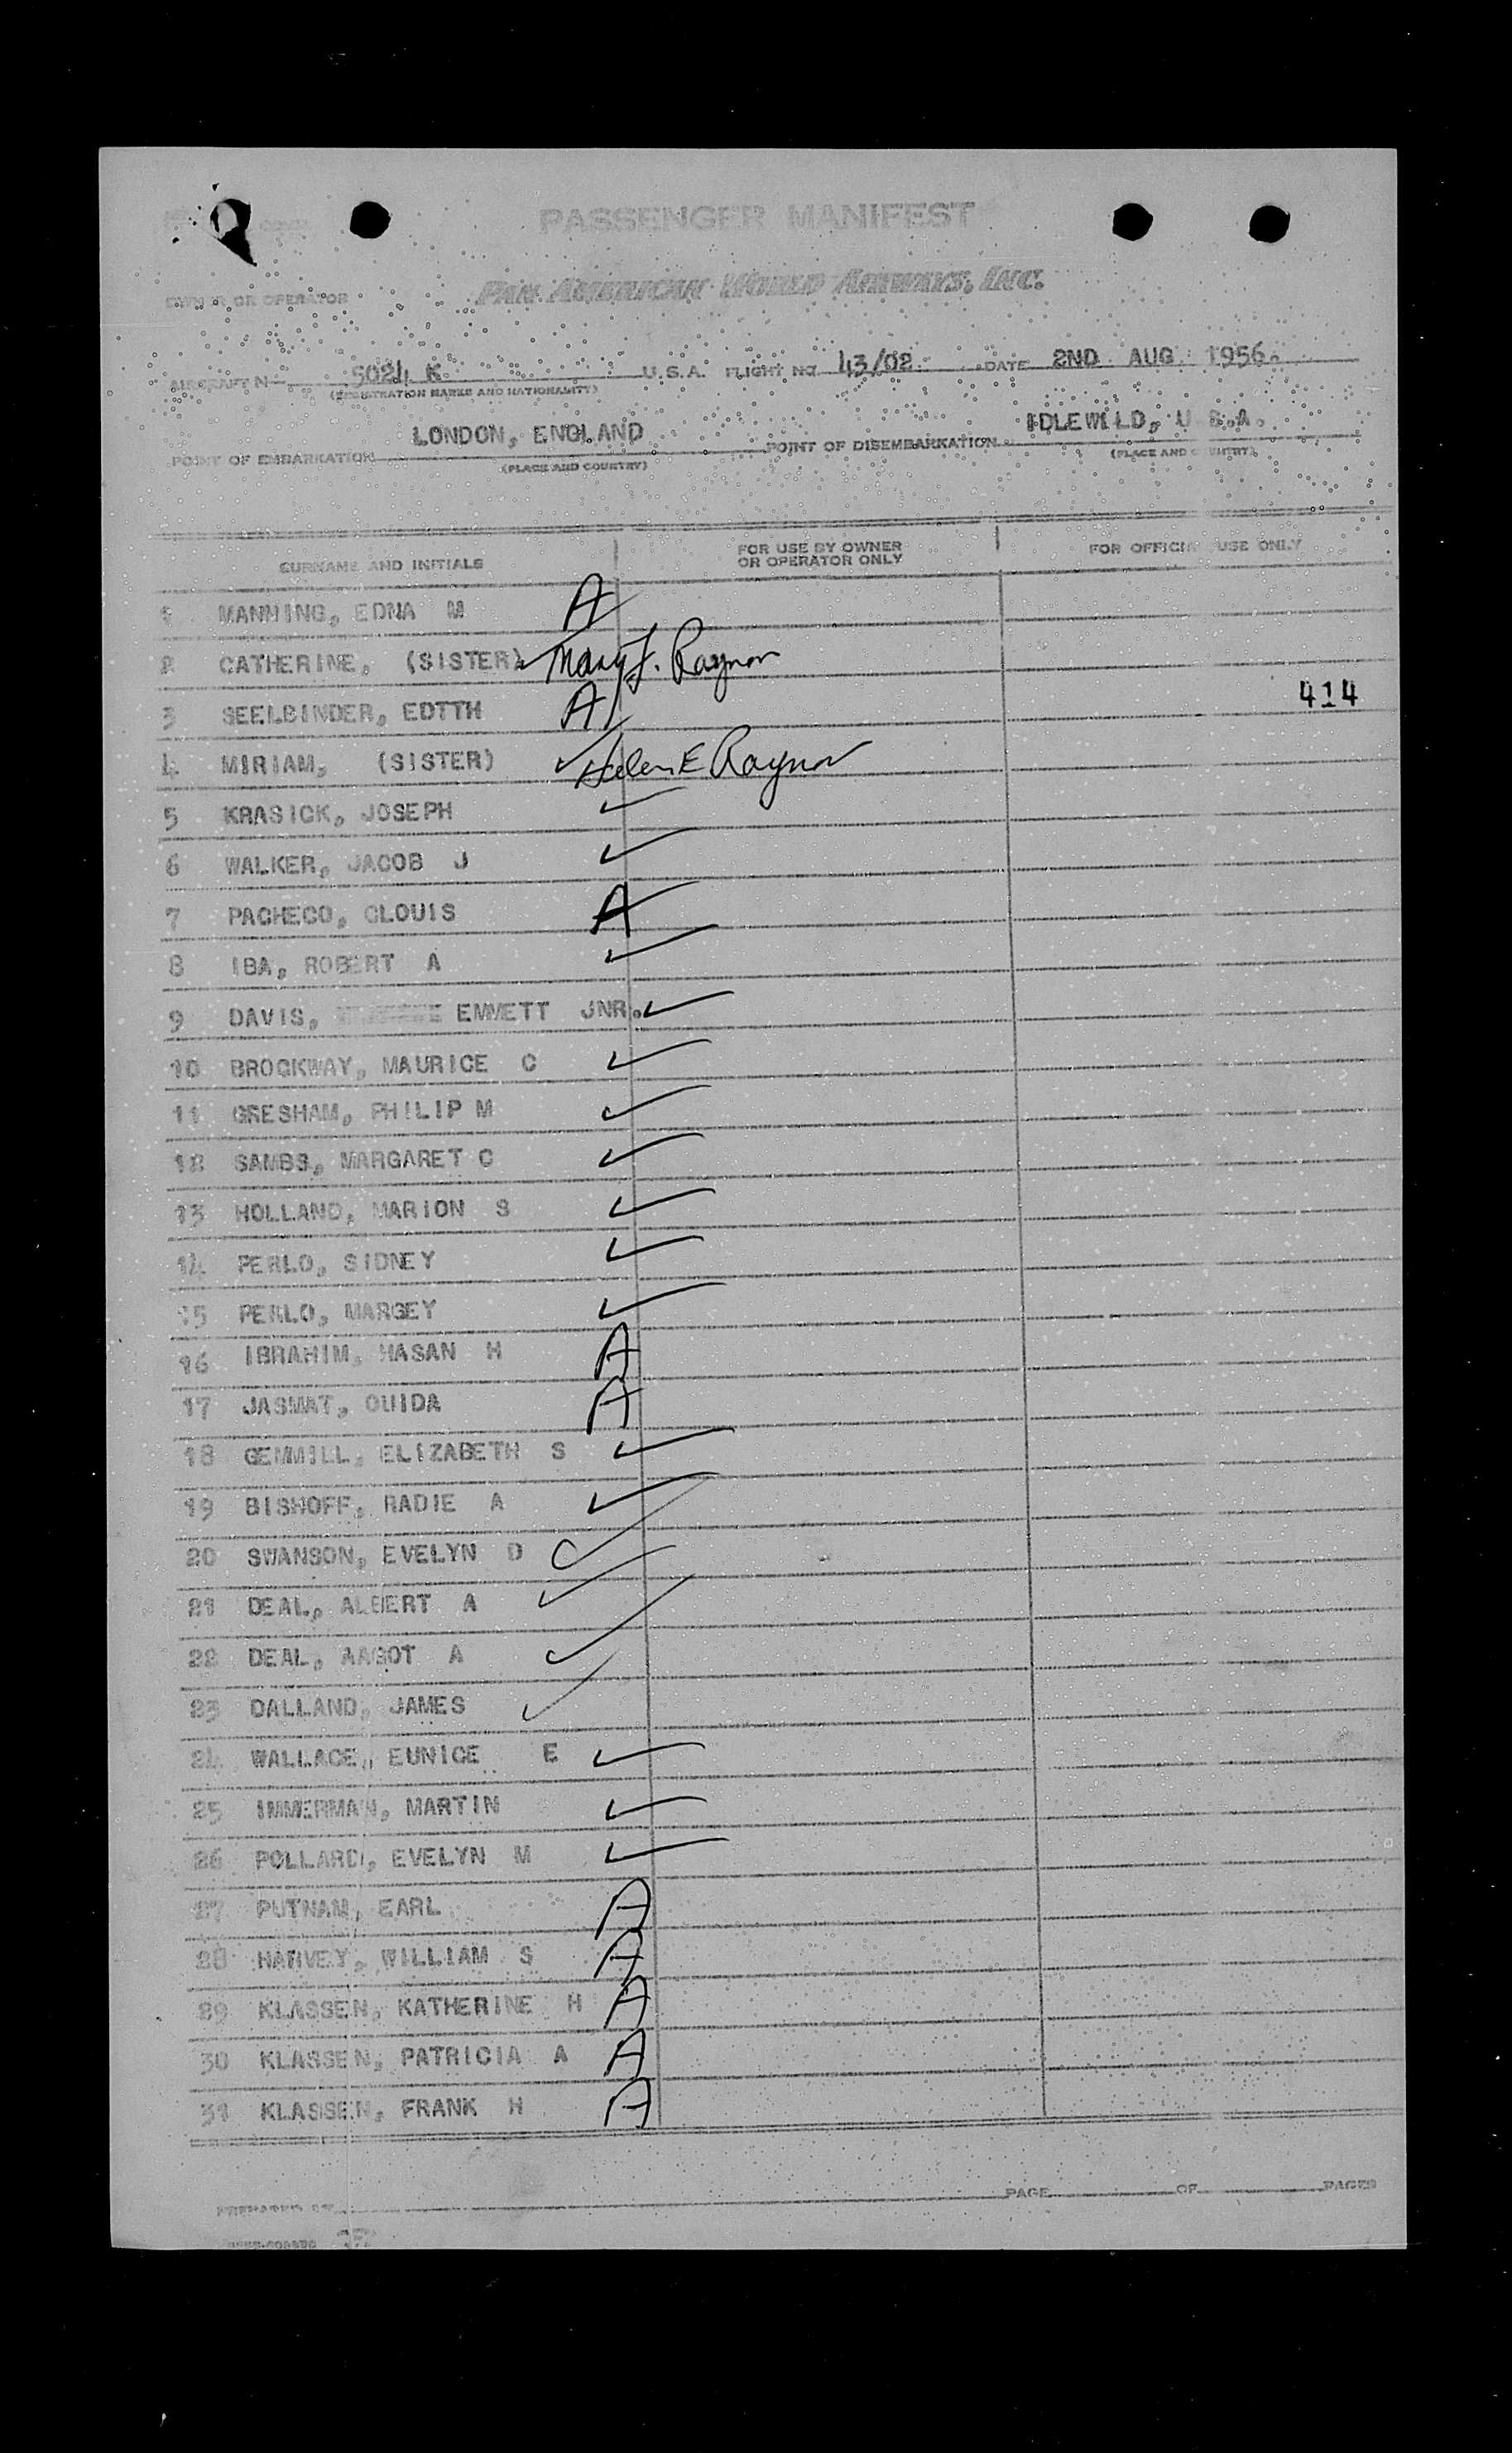 PASSENGER MANIFEST
OWNER OR OPERATOR PAN AMERICAN WORLD AIRWAYS, INC.
AIRCRAFT N 5024 K U.S.A. FLIGHT NO. 43/02 DATE 2ND AUG. 1956.
(REGISTRATION MARKS AND NATIONALITY)
LONDON, ENGLAND IDLEWILD, U.S.A.
POINT OF EMBARKATION POINT OF DISEMBARKATION
(PLACE AND COUNTRY) (PLACE AND COUNTRY)
SURNAME AND INITIALS FOR USE BY OWNER OR OPERATOR ONLY FOR OFFICIAL USE ONLY
1 MANNING, EDNA M A
2 CATHERINE, (SISTER) Mary J. Raynor
3 SEELBINDER, EDTTH A 414
4 MIRIAM, (SISTER) Helen E Raynor
5 KRASICK, JOSEPH ✓
6 WALKER, JACOB J ✓
7 PACHECO, CLOUIS A
8 IBA, ROBERT A ✓
9 DAVIS, EMMETT JNR. ✓
10 BROCKWAY, MAURICE C ✓
11 GRESHAM, PHILIP M ✓
12 SAMBS, MARGARET C ✓
13 HOLLAND, MARION S ✓
14 PERLO, SIDNEY ✓
15 PERLO, MARGEY ✓
16 IBRAHIM, HASAN H A
17 JASMAT, OUIDA A
18 GEMMILL, ELIZABETH S ✓
19 BISHOFF, RADIE A ✓
20 SWANSON, EVELYN D ✓
21 DEAL, ALBERT A ✓
22 DEAL, AAGOT A ✓
23 DALLAND, JAMES ✓
24 WALLACE, EUNICE E ✓
25 IMMERMAN, MARTIN ✓
26 POLLARD, EVELYN M ✓
27 PUTNAM, EARL A
28 HARVEY, WILLIAM S A
29 KLASSEN, KATHERINE H A
30 KLASSEN, PATRICIA A A
31 KLASSEN, FRANK H A
PREPARED BY PAGE OF PAGES